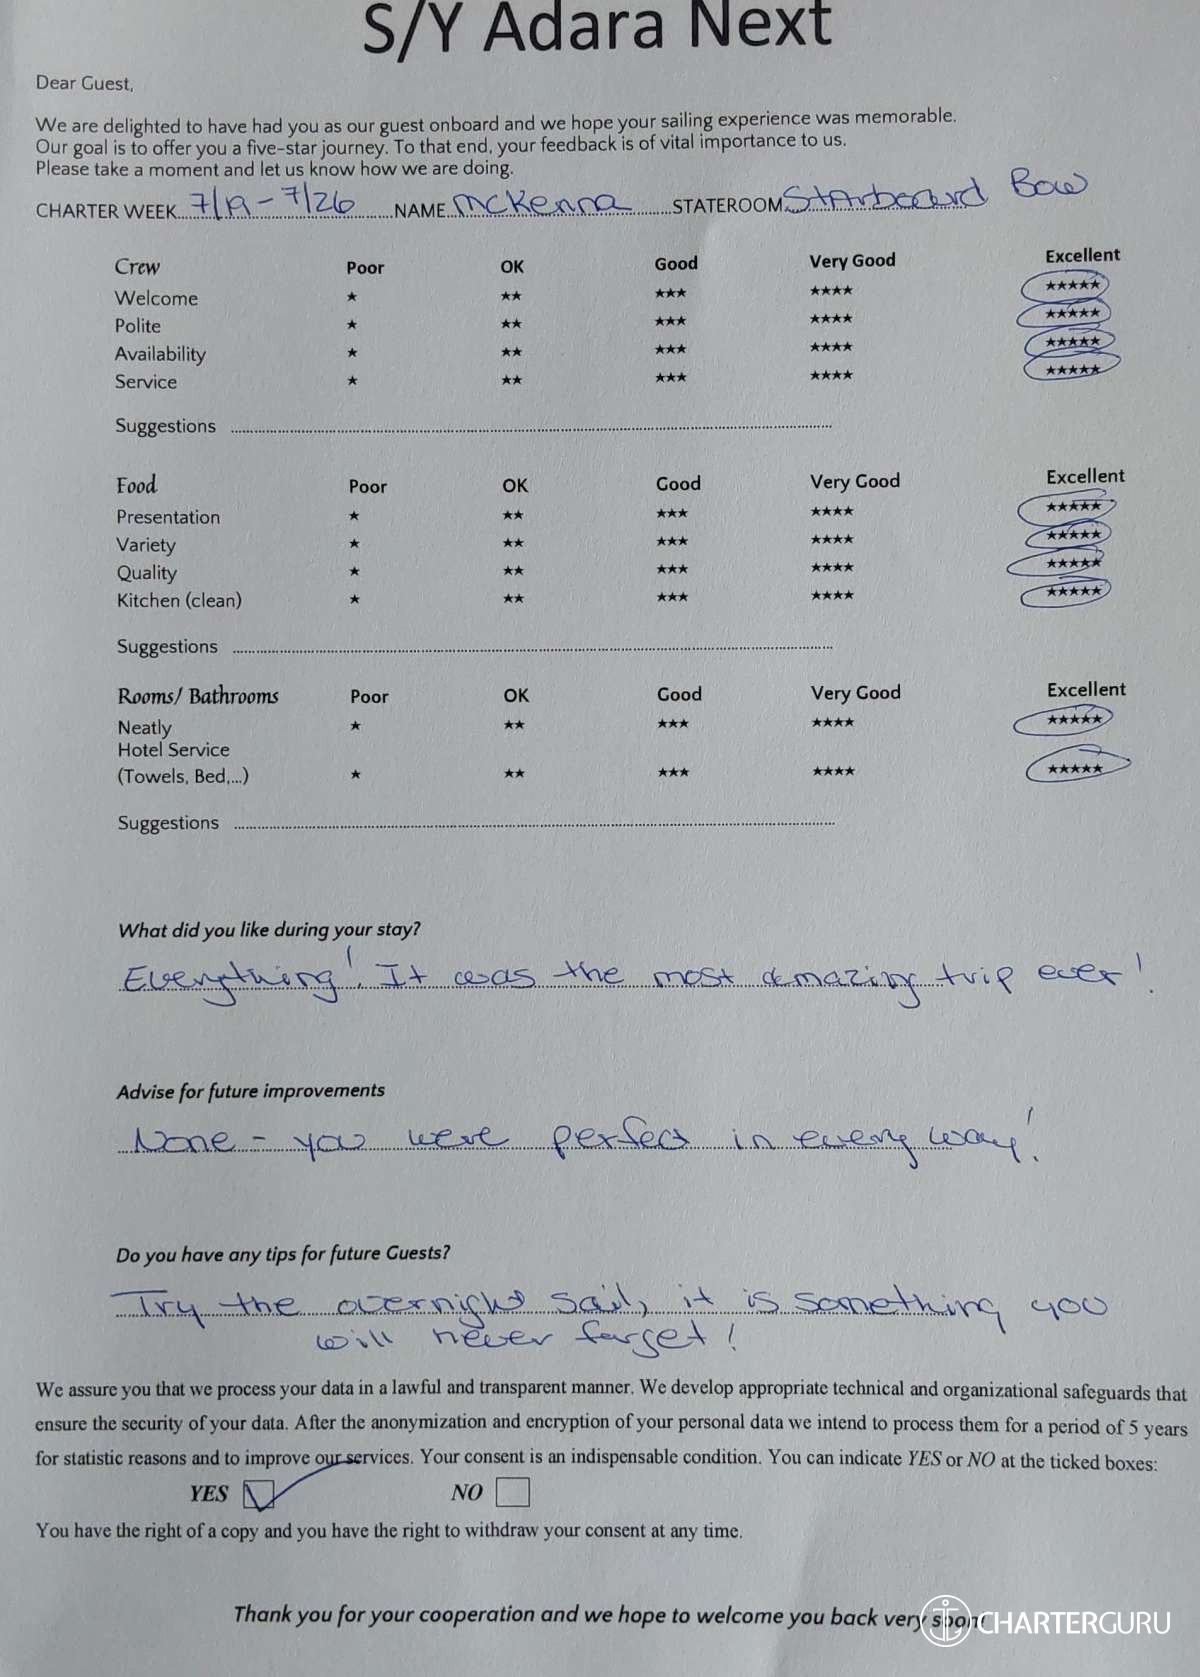 S/Y Adara Next
Dear Guest,
We are delighted to have had you as our guest onboard and we hope your sailing experience was memorable.
Our goal is to offer you a five-star journey. To that end, your feedback is of vital importance to us.
Please take a moment and let us know how we are doing.
CHARTER WEEK 7/19 - 7/26 NAME McKenna STATEROOM Starboard Bow
Crew Poor OK Good Very Good Excellent
Welcome ★ ★★ ★★★ ★★★★ ★★★★★
Polite ★ ★★ ★★★ ★★★★ ★★★★★
Availability ★ ★★ ★★★ ★★★★ ★★★★★
Service ★ ★★ ★★★ ★★★★ ★★★★★
Suggestions
Food Poor OK Good Very Good Excellent
Presentation ★ ★★ ★★★ ★★★★ ★★★★★
Variety ★ ★★ ★★★ ★★★★ ★★★★★
Quality ★ ★★ ★★★ ★★★★ ★★★★★
Kitchen (clean) ★ ★★ ★★★ ★★★★ ★★★★★
Suggestions
Rooms/ Bathrooms Poor OK Good Very Good Excellent
Neatly ★ ★★ ★★★ ★★★★ ★★★★★
Hotel Service
(Towels, Bed,...) ★ ★★ ★★★ ★★★★ ★★★★★
Suggestions
What did you like during your stay?
Everything! It was the most amazing trip ever!
Advise for future improvements
None - you were perfect in every way!
Do you have any tips for future Guests?
Try the overnight sail, it is something you
will never forget!
We assure you that we process your data in a lawful and transparent manner. We develop appropriate technical and organizational safeguards that
ensure the security of your data. After the anonymization and encryption of your personal data we intend to process them for a period of 5 years
for statistic reasons and to improve our services. Your consent is an indispensable condition. You can indicate YES or NO at the ticked boxes:
YES NO
You have the right of a copy and you have the right to withdraw your consent at any time.
Thank you for your cooperation and we hope to welcome you back very soon!
CHARTERGURU